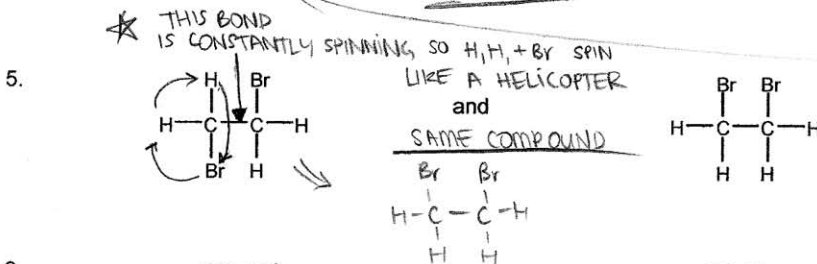 THIS BOND
IS CONSTANTLY SPINNING, SO H, H, + Br SPIN
LIKE A HELICOPTER
5.
H Br
H—C—C—H
Br H
and
SAME COMPOUND
Br Br
H-C-C-H
H H
Br Br
H—C—C—H
H H